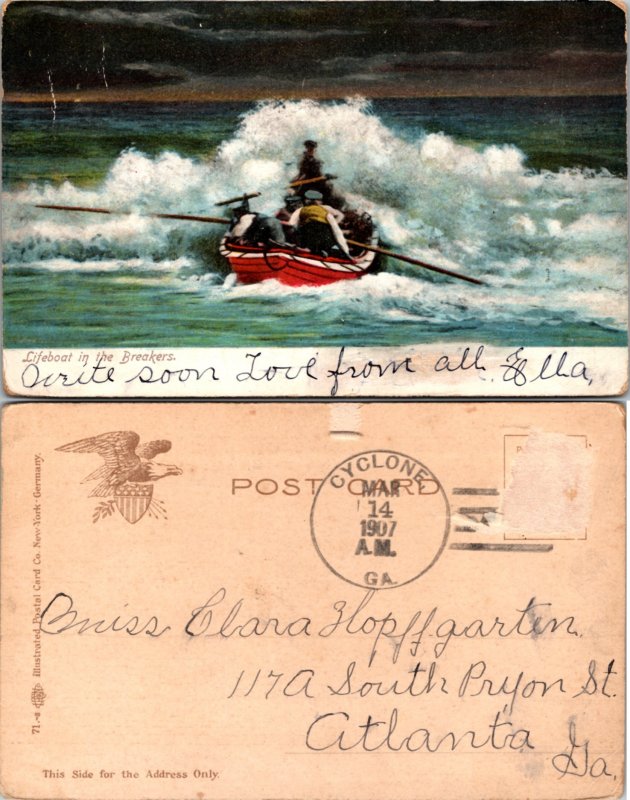 Lifeboat in the Breakers.
Write soon Love from all. Ella,
POST CARD
CYCLONE
MAR
14
1907
A.M.
GA.
71.-8 Illustrated Postal Card Co. New-York-Germany.
Miss Clara Hopffgarten.
117A South Pryon St.
Atlanta
Ga,
This Side for the Address Only.